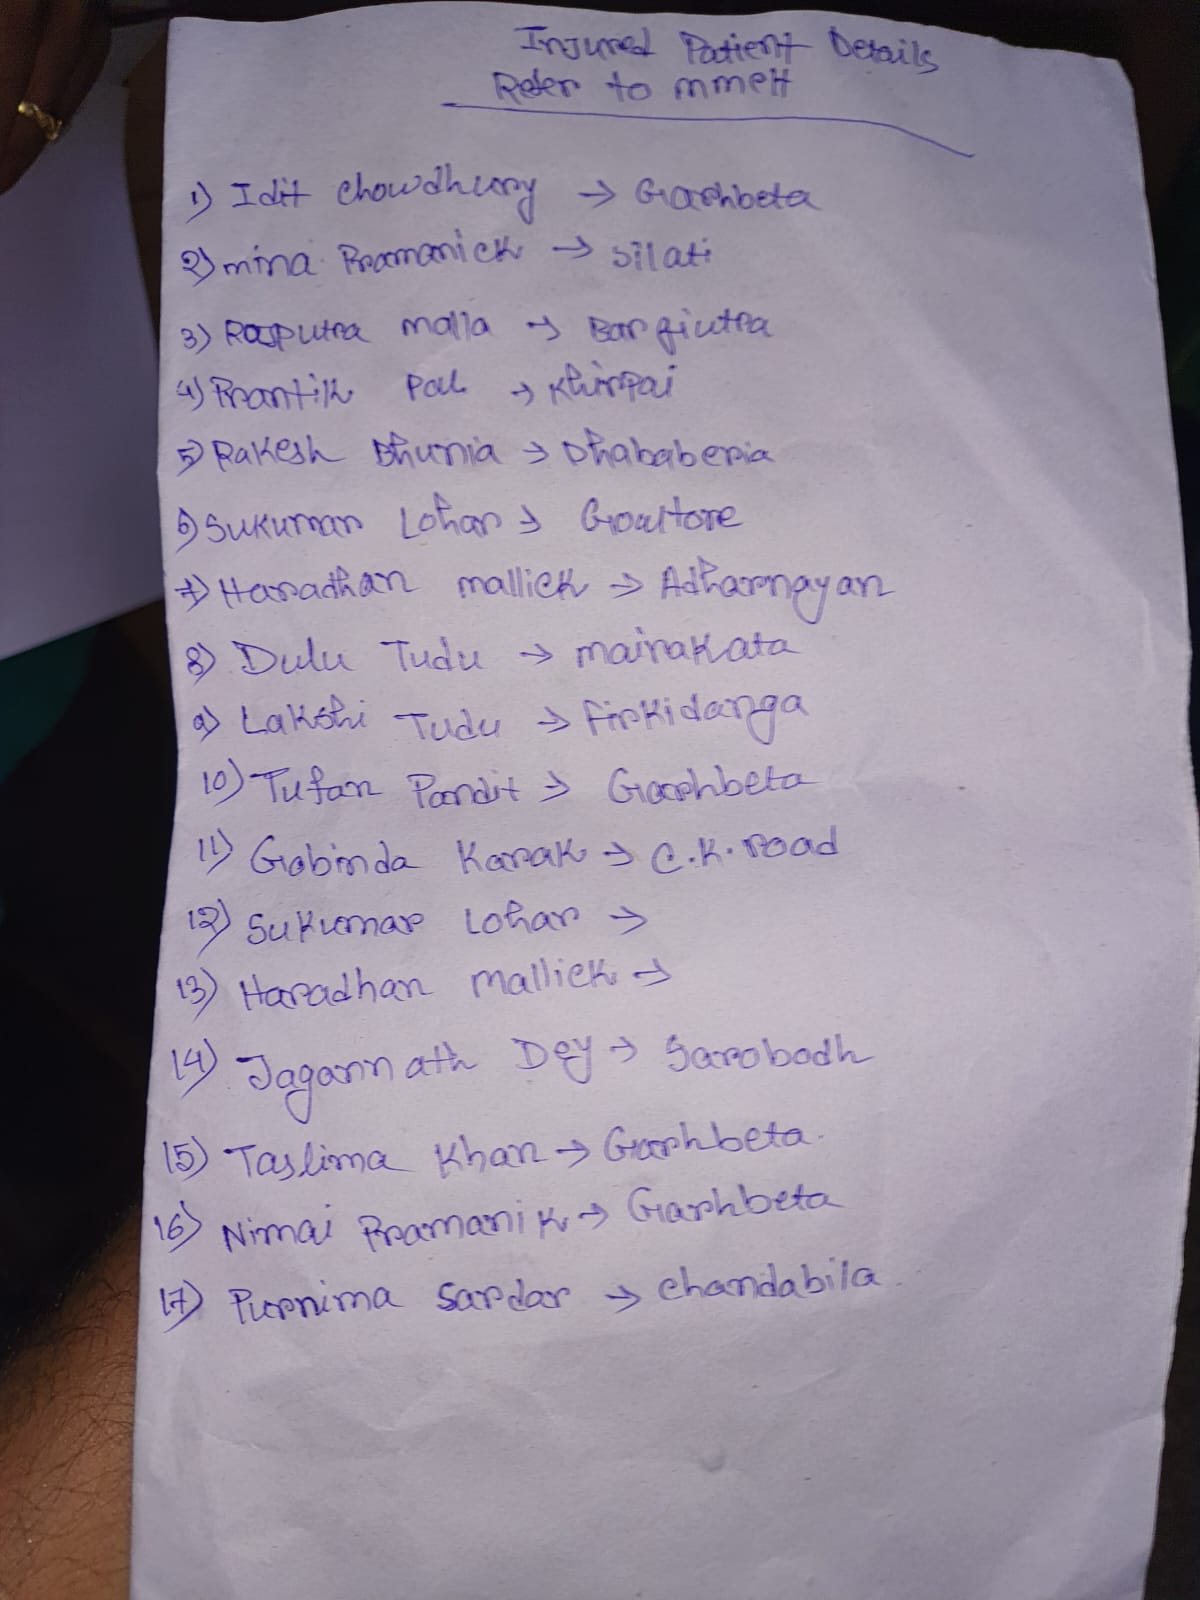 Injured Patient Details
Refer to MMCH
1) Idit Chowdhury → Garhbeta
2) Mina Pramanick → Silati
3) Rajputra Malla → Bargiutra
4) Prantik Pal → Khirpai
5) Rakesh Bhunia → Dhababeria
6) Sukumar Lohar → Goaltore
7) Haradhan Mallick → Adharnayan
8) Dulu Tudu → Mairakata
9) Lakshi Tudu → Firkidanga
10) Tufan Pandit → Garhbeta
11) Gobinda Karak → C.K. Road
12) Sukumar Lohar →
13) Haradhan Mallick →
14) Jagannath Dey → Sarobodh
15) Taslima Khan → Garhbeta.
16) Nimai Pramanik → Garhbeta
17) Purnima Sardar → Chandabila